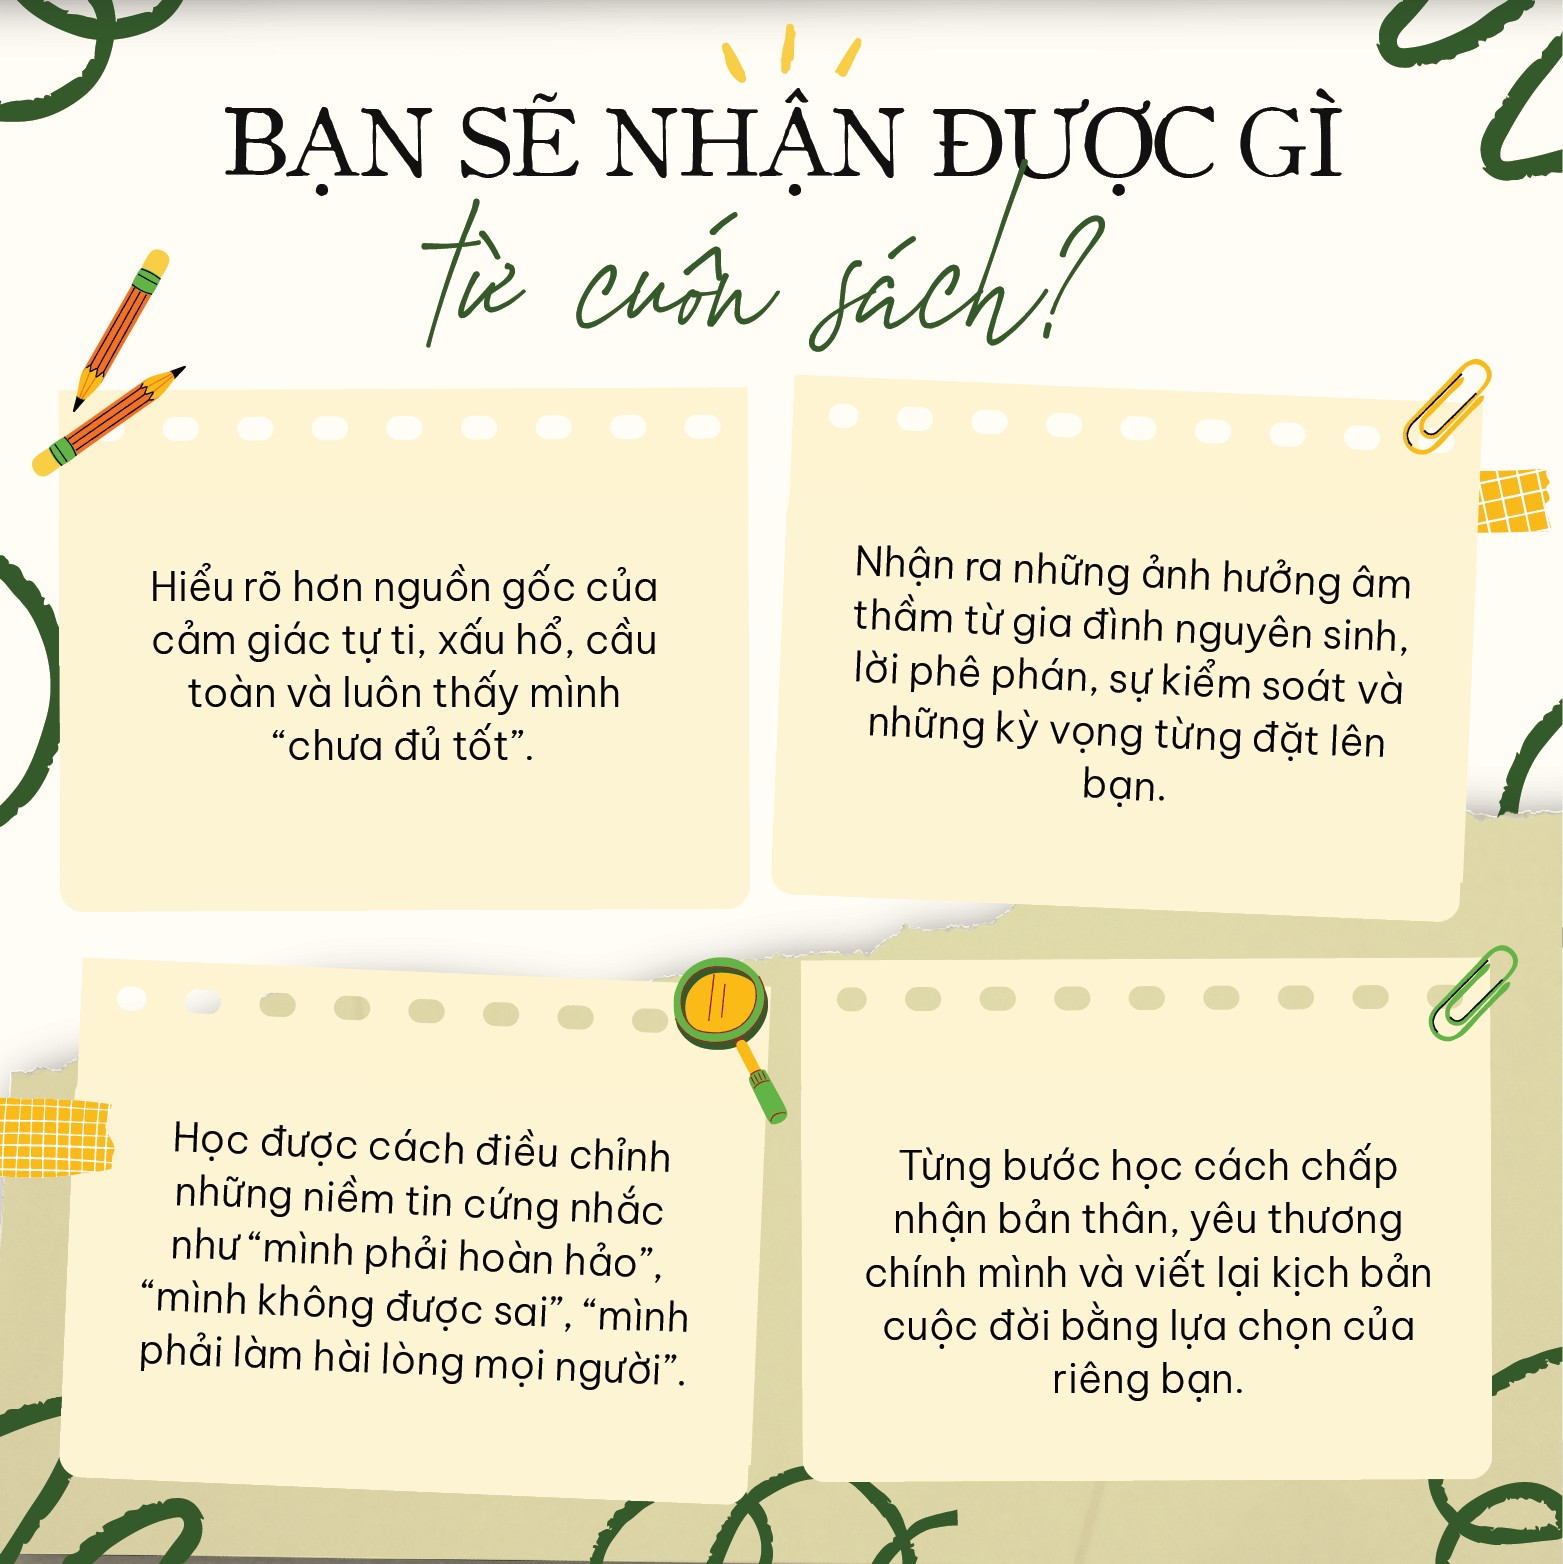 BẠN SẼ NHẬN ĐƯỢC GÌ
từ cuốn sách?
Hiểu rõ hơn nguồn gốc của
cảm giác tự ti, xấu hổ, cầu
toàn và luôn thấy mình
“chưa đủ tốt”.
Nhận ra những ảnh hưởng âm
thầm từ gia đình nguyên sinh,
lời phê phán, sự kiểm soát và
những kỳ vọng từng đặt lên
bạn.
Học được cách điều chỉnh
những niềm tin cứng nhắc
như “mình phải hoàn hảo”,
“mình không được sai”, “mình
phải làm hài lòng mọi người”.
Từng bước học cách chấp
nhận bản thân, yêu thương
chính mình và viết lại kịch bản
cuộc đời bằng lựa chọn của
riêng bạn.